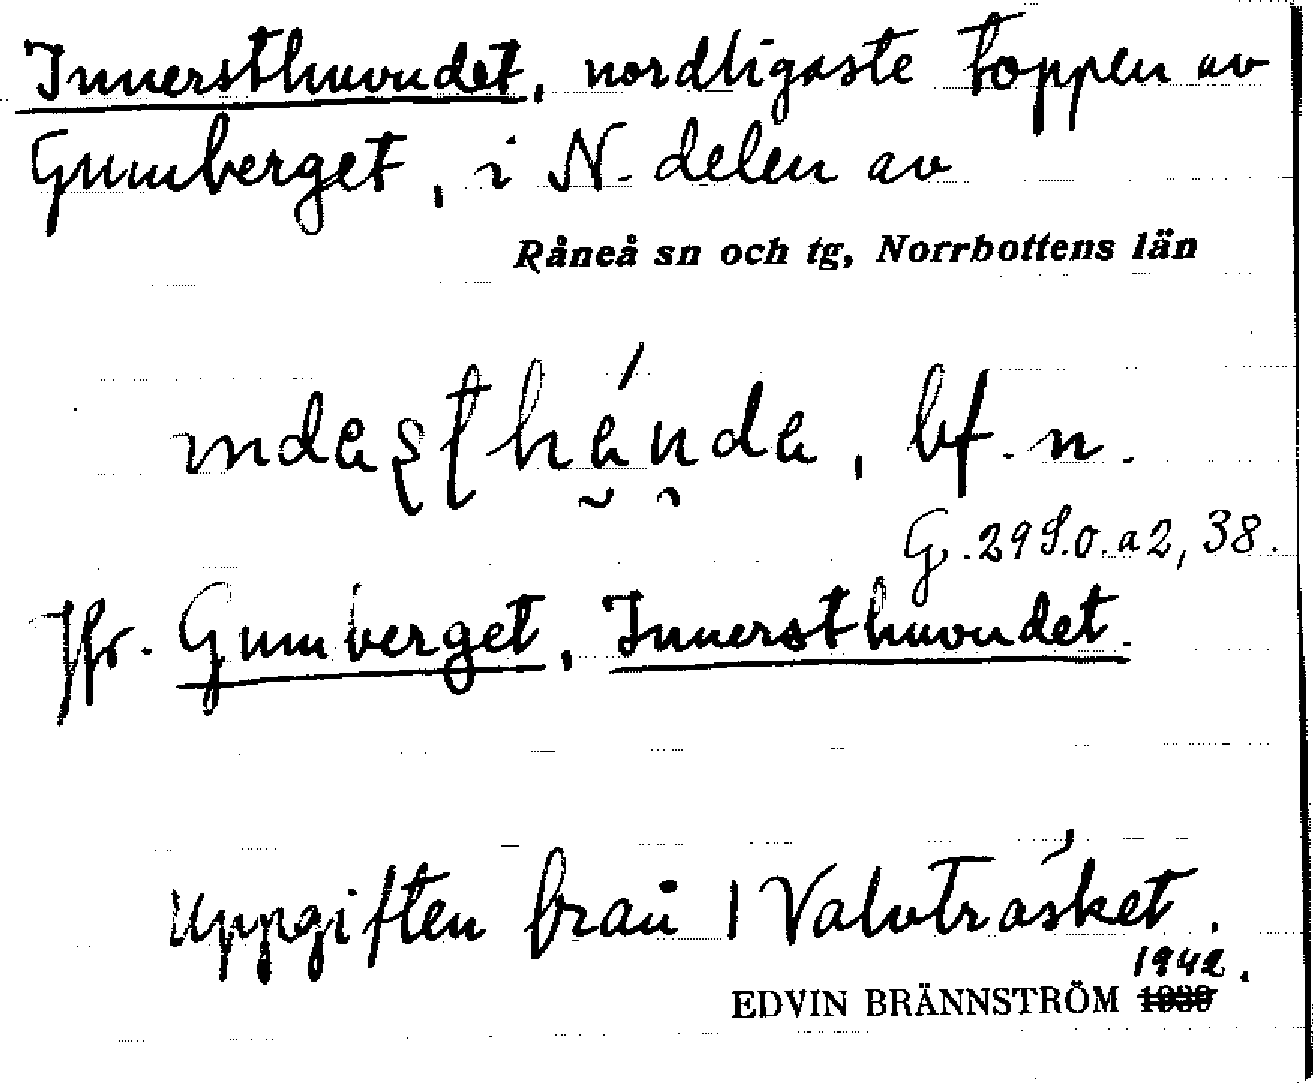 Innersthuvudet, nordligaste toppen av
Gumberget, i N. delen av
Råneå sn och tg, Norrbottens län
bf. n.
G. 29 S.O. a 2, 38.
Jfr. Gumberget, Innersthuvudet.
Uppgiften från 1 Valvträsket.
1942.
EDVIN BRÄNNSTRÖM 1939